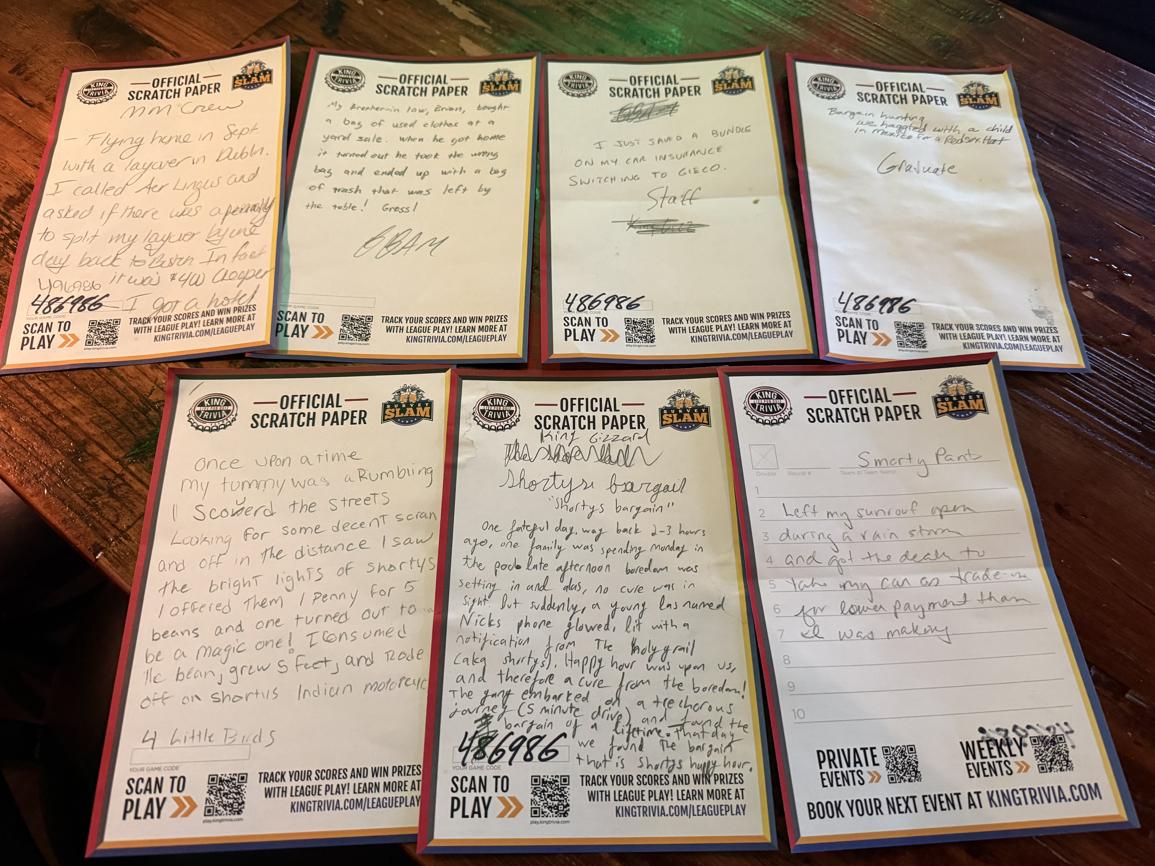 KING TRIVIA
OFFICIAL
SCRATCH PAPER
SLAM
MM Crew
- Flying home in Sept
with a layover in Dublin.
I called Aer Lingus and
asked if there was a penalty
to split my layover by one
day back to Boston In fact
486986 it was $400 cheaper
486986 I got a hotel
SCAN TO
PLAY
TRACK YOUR SCORES AND WIN PRIZES
WITH LEAGUE PLAY! LEARN MORE AT
KINGTRIVIA.COM/LEAGUEPLAY
KING TRIVIA
OFFICIAL
SCRATCH PAPER
SLAM
My Brother in law, Brian, bought
a bag of used clothes at a
yard sale. When he got home
it turned out he took the wrong
bag and ended up with a bag
of trash that was left by
the table! Gross!
YOUR GAME CODE
SCAN TO
PLAY
play.kingtrivia.com
TRACK YOUR SCORES AND WIN PRIZES
WITH LEAGUE PLAY! LEARN MORE AT
KINGTRIVIA.COM/LEAGUEPLAY
KING TRIVIA
OFFICIAL
SCRATCH PAPER
SLAM
I JUST SAVED A BUNDLE
ON MY CAR INSURANCE
SWITCHING TO GIECO.
Staff
486986
SCAN TO
PLAY
play.kingtrivia.com
TRACK YOUR SCORES AND WIN PRIZES
WITH LEAGUE PLAY! LEARN MORE AT
KINGTRIVIA.COM/LEAGUEPLAY
KING TRIVIA
OFFICIAL
SCRATCH PAPER
SLAM
Bargain hunting
we haggled with a child
in Mexico for a Red Sox Hat
Graduate
486986
SCAN TO
PLAY
TRACK YOUR SCORES AND WIN PRIZES
WITH LEAGUE PLAY! LEARN MORE AT
KINGTRIVIA.COM/LEAGUEPLAY
KING TRIVIA
OFFICIAL
SCRATCH PAPER
SURVEY SLAM
Once upon a time
my tummy was a Rumbling
I Scowerd the streets
Looking for some decent scran
and off in the distance I saw
the bright lights of shortys
I offered them 1 penny for 5
beans and one turned out to
be a magic one! I Consumed
the bean, grew 5 feet, and Rode
off on shortys Indian motorcycle
4 Little Birds
YOUR GAME CODE
SCAN TO
PLAY
play.kingtrivia.com
TRACK YOUR SCORES AND WIN PRIZES
WITH LEAGUE PLAY! LEARN MORE AT
KINGTRIVIA.COM/LEAGUEPLAY
KING TRIVIA
OFFICIAL
SCRATCH PAPER
SURVEY SLAM
King Gizzard
Shortys bargail
"Shortys bargain"
One fateful day, way back 2-3 hours
ago, one family was spending monday in
the pool. late afternoon boredom was
setting in and alas, no cure was in
sight. But suddenly, a young las named
Nicks phone glowed, lit with a
notification from The holy grail
(aka shortys). Happy hour was upon us,
and therefore a cure from the boredom!
The gang embarked on a trechorous
journey (5 minute drive) and found the
bargain of a lifetime. That day
we found the bargain
that is shortys happy hour.
486986
YOUR GAME CODE
SCAN TO
PLAY
play.kingtrivia.com
TRACK YOUR SCORES AND WIN PRIZES
WITH LEAGUE PLAY! LEARN MORE AT
KINGTRIVIA.COM/LEAGUEPLAY
KING TRIVIA
OFFICIAL
SCRATCH PAPER
SURVEY SLAM
Smarty Pants
1
2 Left my sunroof open
3 during a rain storm
4 and got the dealer to
5 take my car as trade-in
6 for lower payment than
7 I was making
8
9
10
PRIVATE
EVENTS
WEEKLY
EVENTS
BOOK YOUR NEXT EVENT AT KINGTRIVIA.COM